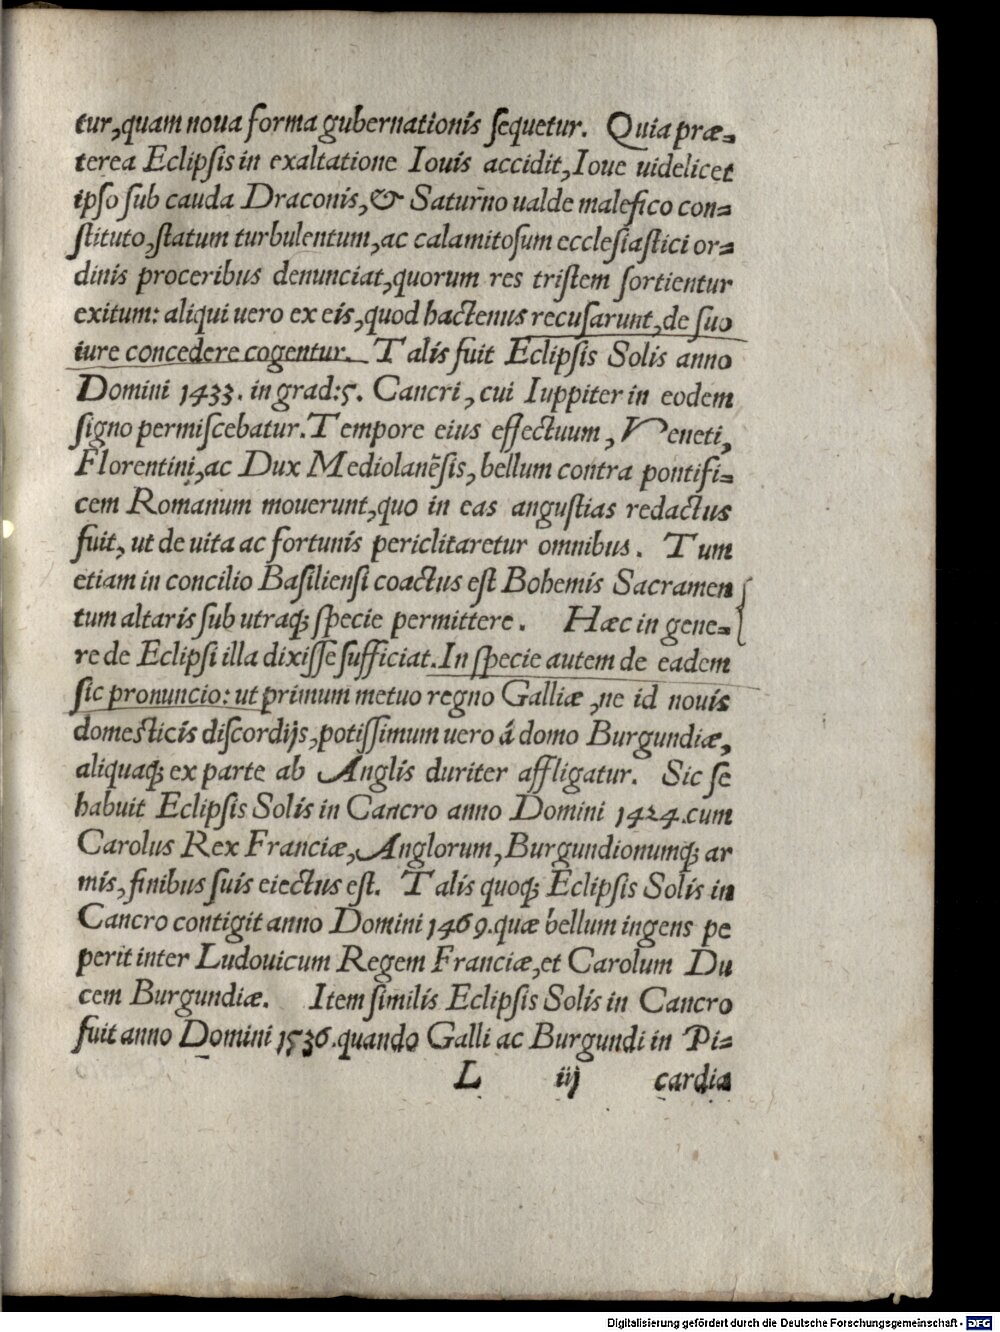 tur, quam noua forma gubernationis sequetur. Quia præ-
terea Eclipsis in exaltatione Iouis accidit, Ioue uidelicet
ipso sub cauda Draconis, & Saturno ualde malefico con-
stituto, statum turbulentum, ac calamitosum ecclesiastici or-
dinis proceribus denunciat, quorum res tristem sortientur
exitum: aliqui uero ex eis, quod hactenus recusarunt, de suo
iure concedere cogentur. Talis fuit Eclipsis Solis anno
Domini 1433. in grad: 5. Cancri, cui Iuppiter in eodem
signo permiscebatur. Tempore eius effectuum, Veneti,
Florentini, ac Dux Mediolanẽsis, bellum contra pontifi-
cem Romanum mouerunt, quo in eas angustias redactus
fuit, ut de uita ac fortunis periclitaretur omnibus. Tum
etiam in concilio Basiliensi coactus est Bohemis Sacramen
tum altaris sub utraq; specie permittere. Hæc in gene-
re de Eclipsi illa dixisse sufficiat. In specie autem de eadem
sic pronuncio: ut primum metuo regno Galliæ, ne id nouis
domesticis discordijs, potissimum uero á domo Burgundiæ,
aliquaq; ex parte ab Anglis duriter affligatur. Sic se
habuit Eclipsis Solis in Cancro anno Domini 1424. cum
Carolus Rex Franciæ, Anglorum, Burgundionumq; ar
mis, finibus suis eiectus est. Talis quoq; Eclipsis Solis in
Cancro contigit anno Domini 1469. quæ bellum ingens pe
perit inter Ludouicum Regem Franciæ, et Carolum Du
cem Burgundiæ. Item similis Eclipsis Solis in Cancro
fuit anno Domini 1536. quando Galli ac Burgundi in Pi-
L iij cardia
Digitalisierung gefördert durch die Deutsche Forschungsgemeinschaft - DFG